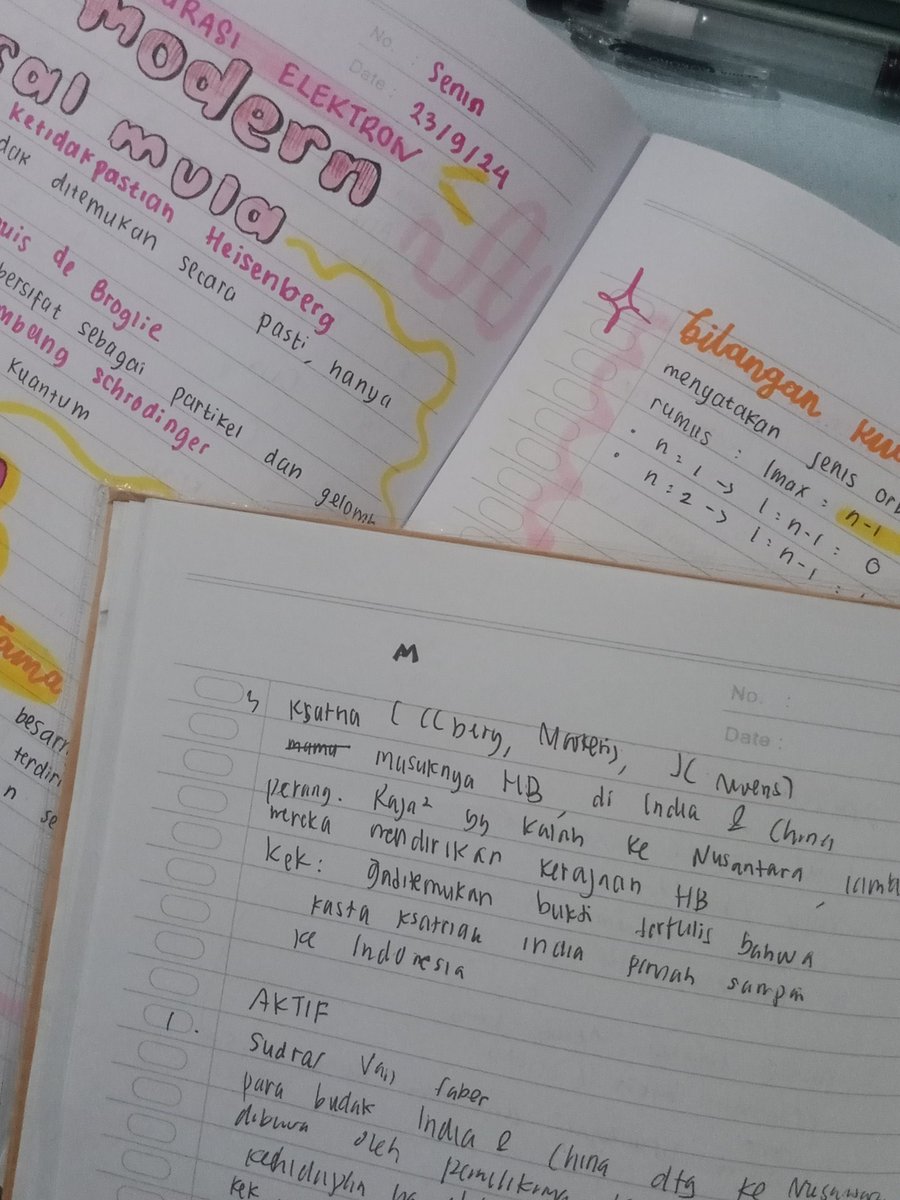 URASI ELEKTRON
No. :
Date :
Senin
23/9/24
Modern
sal mula
ketidakpastian Heisenberg
dak ditemukan secara pasti, hanya
uis de Broglie
bersifat sebagai partikel dan gelomb
mbang schrodinger
kuantum
tama
besarr
terdiri
n se
bilangan kua
menyatakan jenis orb
rumus : lmax : n-1
• n = 1 -> l = n-1 = 0
• n = 2 -> l = n-1 =
M
No. :
Date :
musuknya HB, di India & China
perang. Raja² yg kalah ke Nusantara,
mereka mendirikan kerajaan HB
kek: gaditemukan bukti tertulis bahwa
kasta ksatriah india pernah sampai
ke Indonesia
AKTIF
1. Sudra, Van Faber
para budak India & China dtg ke Nusantara
dibawa oleh
kehidupan
kek